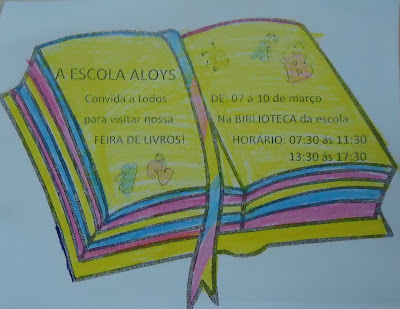 A ESCOLA ALOYS
Convida a todos
para visitar nossa
FEIRA DE LIVROS!
DE: 07 á 10 de março
Na BIBLIOTECA da escola
HORÁRIO: 07:30 ás 11:30
13:30 ás 17:30